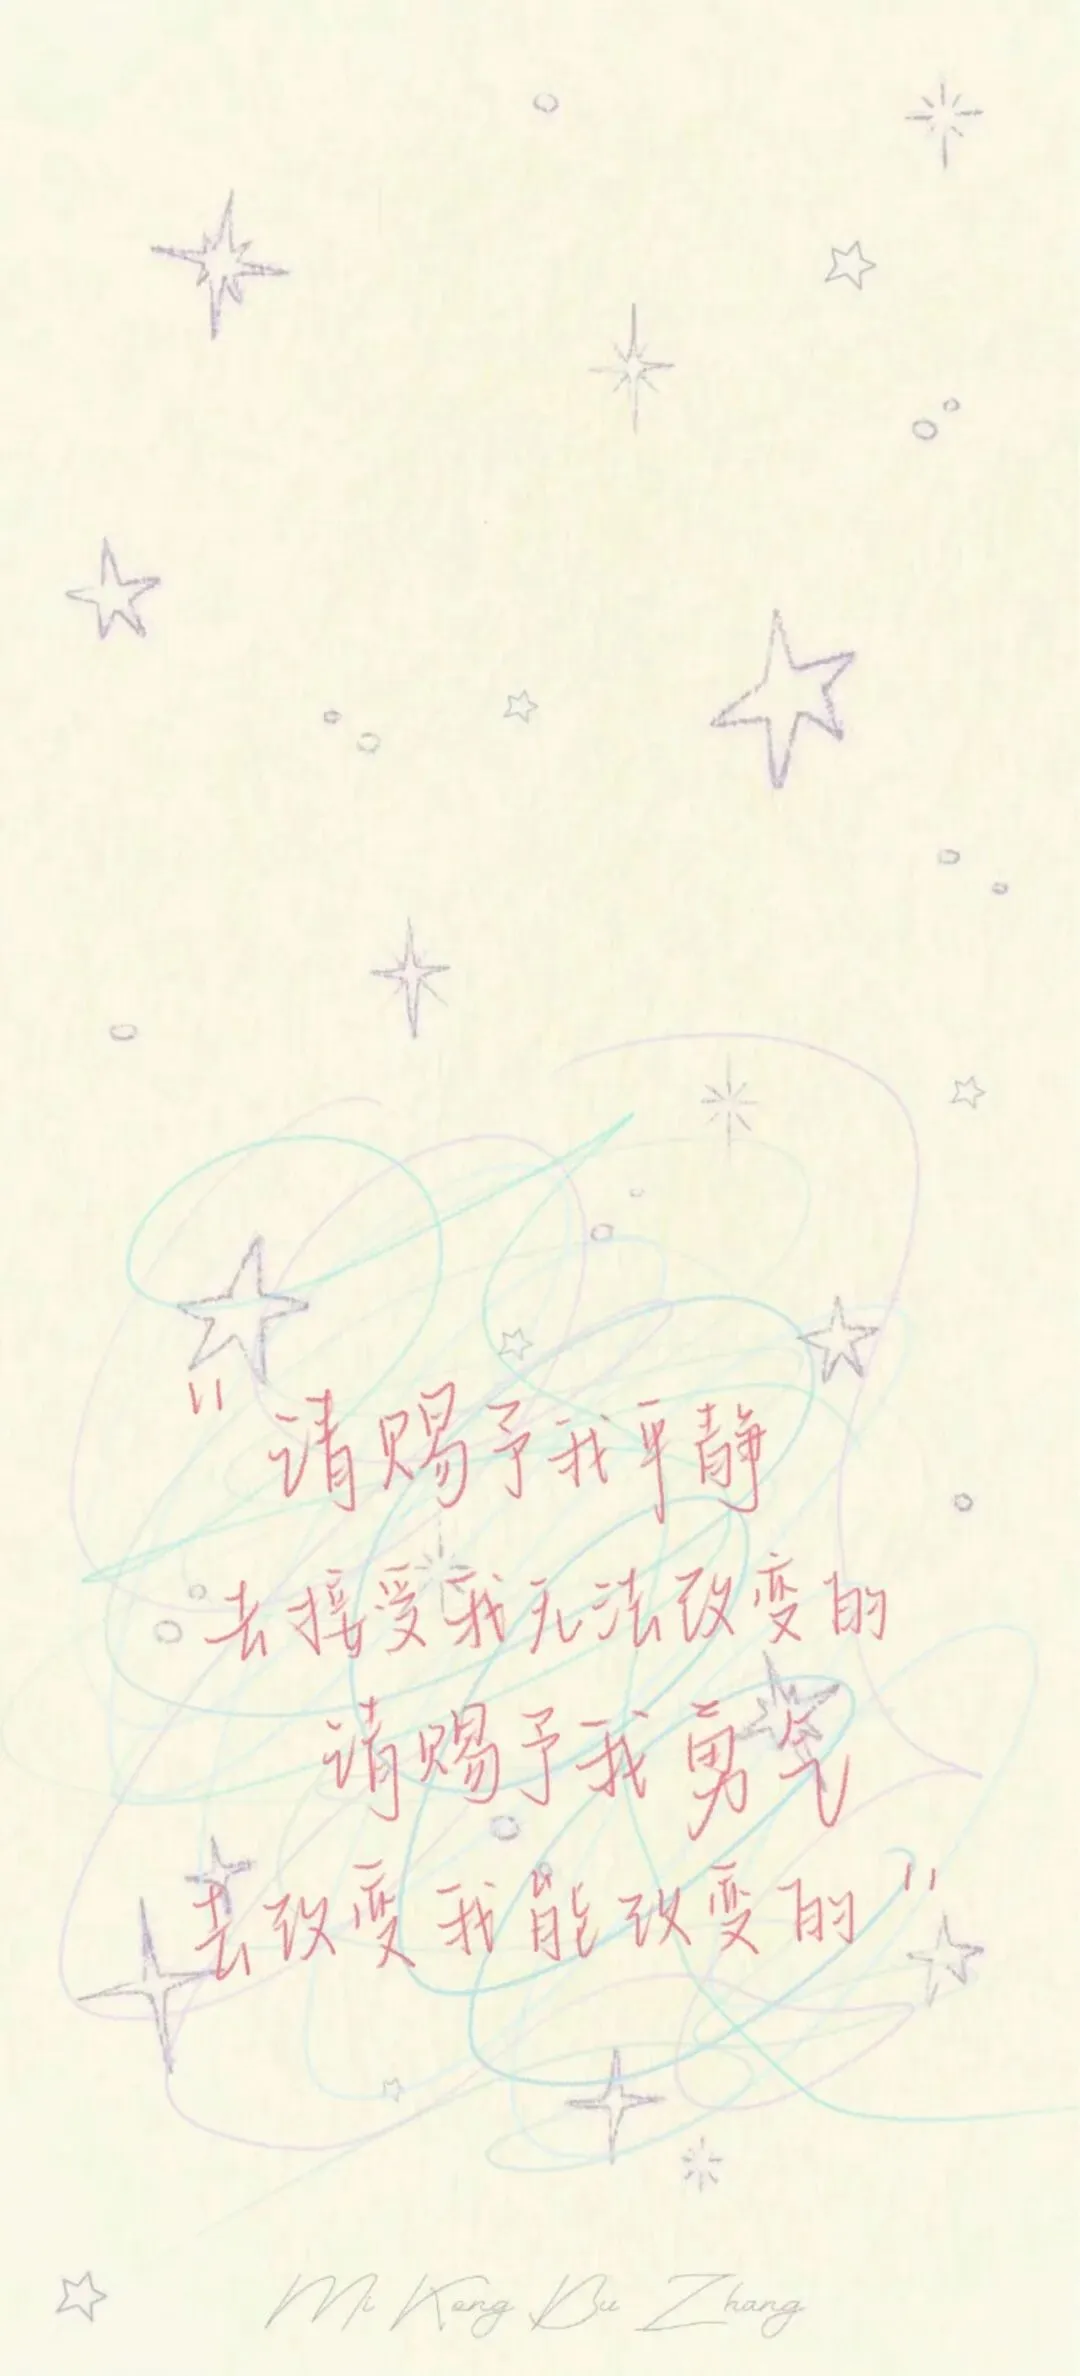 "请赐予我平静
去接受我无法改变的
请赐予我勇气
去改变我能改变的"
Mi Kong Bu Zhang